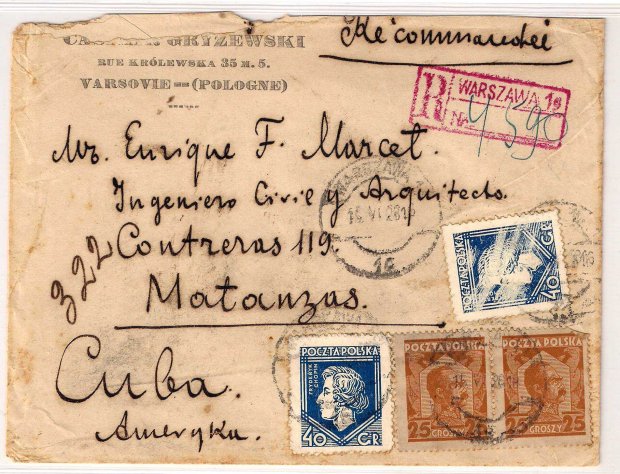 GRYZEWSKI
RUE KRÓLEWSKA 35 M. 5.
VARSOVIE — (POLOGNE)
Recommandeé
R WARSZAWA 1
No 4590
Mr. Enrique F. Marcet.
Ingeniero Civie y Arquitecto.
Contreras 119.
Matanzas.
322
Cuba.
Ameryka.
WARSZAWA
VI 28
1c
POCZTA POLSKA
40 GR.
POCZTA POLSKA
FRYDERYK CHOPIN
40 GR
POCZTA POLSKA
25 GROSZY
POCZTA POLSKA
25 GROSZY 25